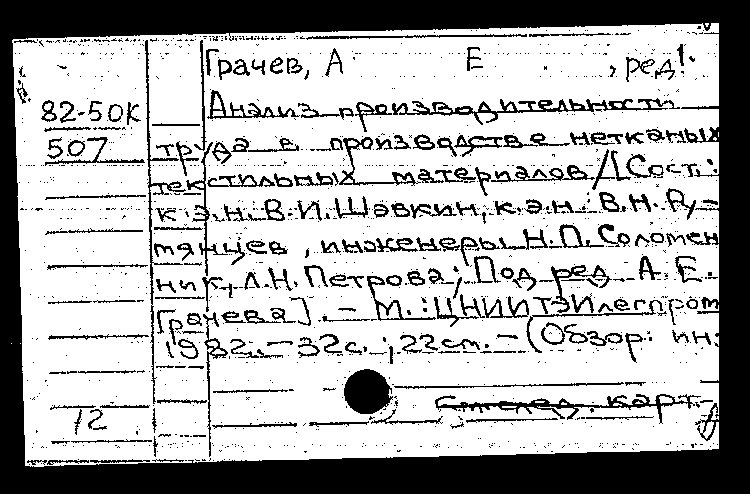 Грачев, А Е , ред.
82-50К
507
Анализ производительности
труда в производстве нетканых
текстильных материалов / [Сост.:
к.э.н. В.И. Шевкин, к.э.н. В.Н. Ру-
мянцев, инженеры Н.П. Соломен
ник, Л.Н. Петрова; Под ред А.Е.
Грачева]. – М.: ЦНИИТЭИлегпром
1982. – 32с.; 22см. – (Обзор: ин
12
см след. карт.